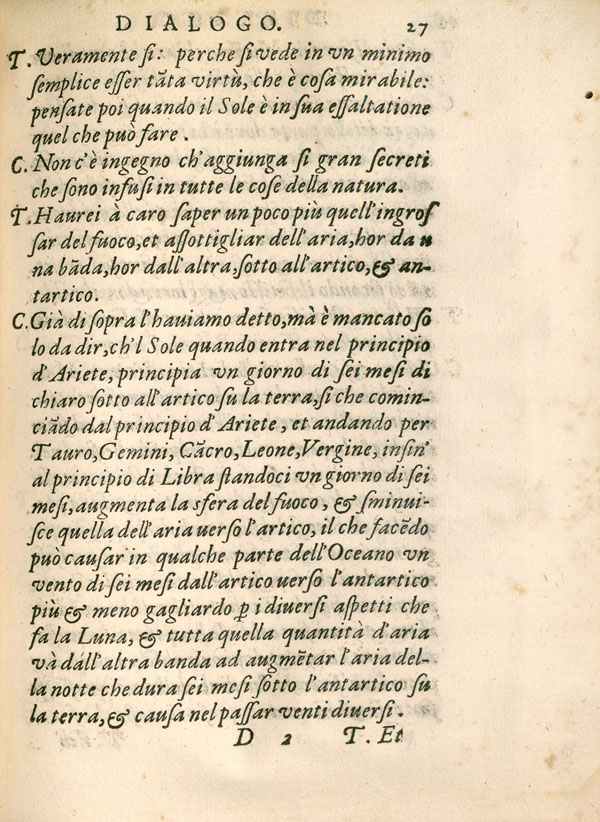 DIALOGO. 27
T. Veramente si: perche si vede in vn minimo
semplice esser tãta virtù, che è cosa mirabile:
pensate poi quando il Sole è in sua essaltatione
quel che può fare.
C. Non c'è ingegno ch'aggiunga si gran secreti
che sono infusi in tutte le cose della natura.
T. Haurei à caro saper un poco più quell'ingros
sar del fuoco, et assottigliar dell'aria, hor da u
na bãda, hor dall'altra, sotto all'artico, & an-
tartico.
C. Già di sopra l'hauiamo detto, mà è mancato so
lo da dir, ch'l Sole quando entra nel principio
d'Ariete, principia vn giorno di sei mesi di
chiaro sotto all'artico su la terra, si che comin-
ciãdo dal principio d'Ariete, et andando per
Tauro, Gemini, Cãcro, Leone, Vergine, insin'
al principio di Libra standoci vn giorno di sei
mesi, augmenta la sfera del fuoco, & sminui-
sce quella dell'aria uerso l'artico, il che facẽdo
può causar in qualche parte dell'Oceano vn
vento di sei mesi dall'artico uerso l'antartico
più & meno gagliardo ꝑ i diuersi aspetti che
fa la Luna, & tutta quella quantità d'aria
và dáll'altra banda ad augmẽtar l'aria del-
la notte che dura sei mesi sotto l'antartico su
la terra, & causa nel passar venti diuersi.
D 2 T. Et